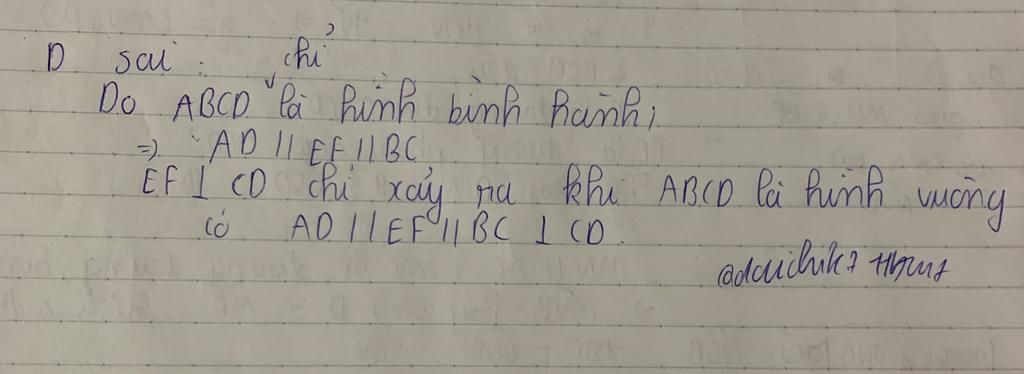 D sai : chỉ
Do ABCD là hình bình hành,
=> AD // EF // BC
EF ⊥ CD chỉ xảy ra khi ABCD là hình vuông
có AD // EF // BC ⊥ CD.